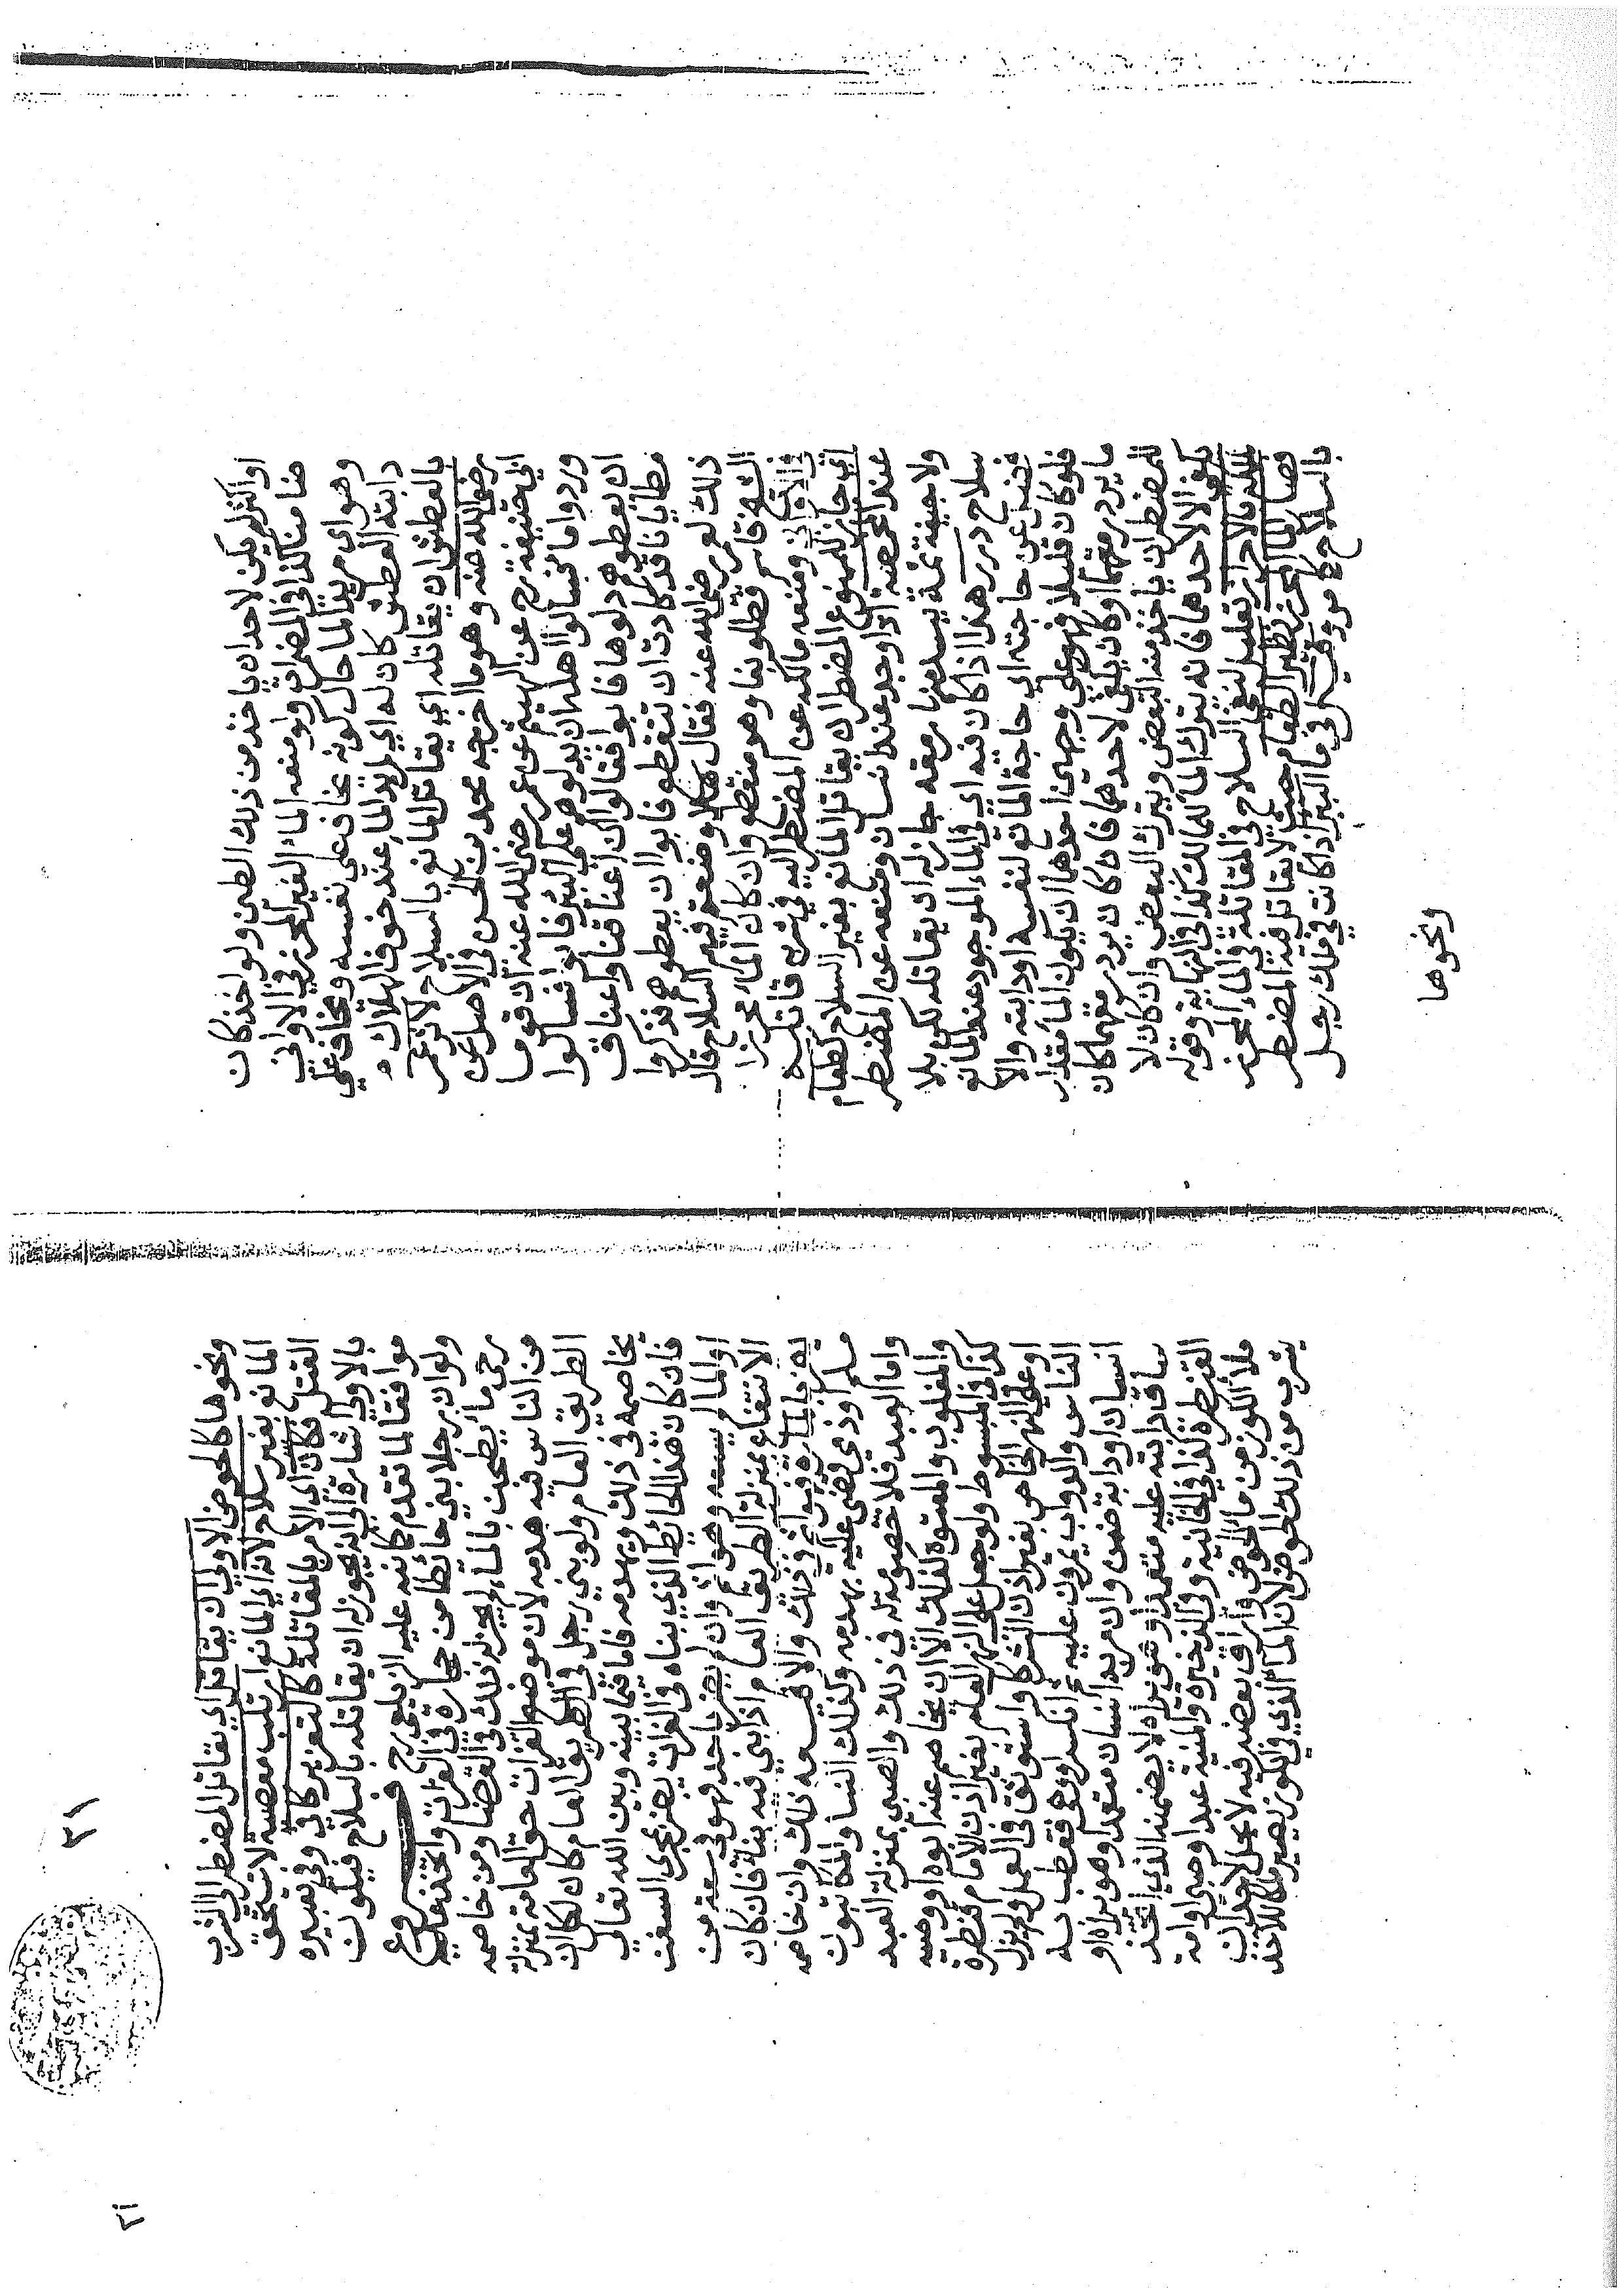 او اكثر لم يكن لاحد ان ياخذ من ذلك الطين ولو اخذ كان
ضامنا كذا في المضمرات ولو منعه الماء الغير المحرز في الاواني
وهو اي مريد الماء حال كونه يخاف على نفسه ويخاف على
دابته العطش كان له اي لمريد الماء عند خوف الهلاك
بالعطش ان يقاتله اي يقاتل المانع بالسلاح لاثر عمر
رضي الله عنه وهو ما اخرجه محمد بن الحسن في الاصل عن
ابي حنيفة رح عن الهيثم عن عمر رضي الله عنه ان قوما
وردوا ماء فسالوا اهله ان يدلوهم على البئر فابوا فسالوا
ان يعطوهم دلوها فابوا فقالوا ان اعناقنا واعناق
مطايانا قد كادت ان تنقطع فابوا ان يعطوهم فذكروا
ذلك لعمر رضي الله عنه فقال هلا وضعتم فيهم السلاح قال
الشيخ قاسم قطلوبغا وهو منقطع وان كان الماء محرزا
في الاواني ومنعه مالكه عن المضطر اليه في شربه قاتله
اي جاز للممنوع المضطر ان يقاتل المانع بغير السلاح كطعام
عند المخمصة اذا وجد عند انسان ومنعه عن المضطر
ولا جيفة ثمة يسد بها رمقه جاز له ان يقاتله لكن بلا
سلاح درر هذا اذا كان فيه اي في الماء الموجود عند المانع
فضل عن حاجته اي حاجة المانع لنفسه او دابته والا
فلو كان قليلا فهو على وجهين احدهما ان يكون الماء مقدار
ما يرد رمقهما او كان يكفي لاحدهما فان كان يرد رمقهما كان
للمضطر ان ياخذ منه البعض ويترك البعض وان كان لا
يكفي الا لاحدهما فانه يترك الماء للمالك كذا في النهاية وقوله
لملكه بالاحراز تعليل لنفي السلاح في المقاتلة في الماء المحرز
فصار الماء المحرز نظير الطعام حيث لا يقاتل فيه المضطر
بالسلاح كما مر وقيل في ماء البئر اذا كانت في ملك رجل
ونحوها
٢١
ونحوها كالحوض الاولى ان يقاتل اي يقاتل المضطر الى الشرب
المانع بغير سلاح لانه اي المانع ارتكب معصية لا تستحق
القتل فكان اي الامر بالمقاتلة كالتعزير كافي وفي تعبيره
بالاولى اشارة الى انه يجوز له ان يقاتله بالسلاح فيكون
موافقا لما تقدم كما نبه عليه الزيلعي رح فروع
ولو ان رجلا بنى حائطا من حجارة في الفرات واتخذ عليه
رحى ماء يطحن بالماء لم يجز له ذلك في القضا ومن خاصمه
من الناس فيه هدمه لان موضع الفرات حق العامة بمنزلة
الطريق العام ولو بنى رجل في الطريق العام كان لكل ان
يخاصمه في ذلك ويهدمه فاما فيما بينه وبين الله تعالى
فان كان هذا الحائط الذي بناه في الفرات يضر بمجرى السفن
او الماء لم يسعه وهو آثم وان لم يضر باحد فهو في سعة من
الانتفاع بمنزلة الطريق العام اذا بنى فيه بناء فان كان
يضر بالمارة فهو آثم في ذلك والا فيسعه ذلك وان خاصمه
مسلم او ذمي قضى عليه بهدمه وكذلك النساء والمكاتبون
واما العبد فلا خصومة له في ذلك والصبي بمنزلة العبد
والمغلوب والمعتوه كذلك الا ان يخاصم عنه ابوه او وصيه
كذا في المبسوط ولو جعل على النهر العام بغير اذن الامام قنطرة
او على النهر الخاص بغير اذن الشركا واستوثق في العمل ولم يزل
الناس والدواب يمرون عليه ثم انكسر او وهي فعطب به
انسان او دابة ضمن وان مر به انسان متعمدا وهو يراه او
ساق دابته عليه متعمدا وهو يراه لا يضمنه الذي اتخذ
القنطرة كذا في الخانية وفي الذخيرة والمنية عبد او صبي او امة
ملأ الكوز من ماء الحوض واراق بعضه فيه لا يحل لاحد ان
يشرب من ذلك الحوض لان الماء الذي في الكوز يصير ملكا للآخذ
٢١